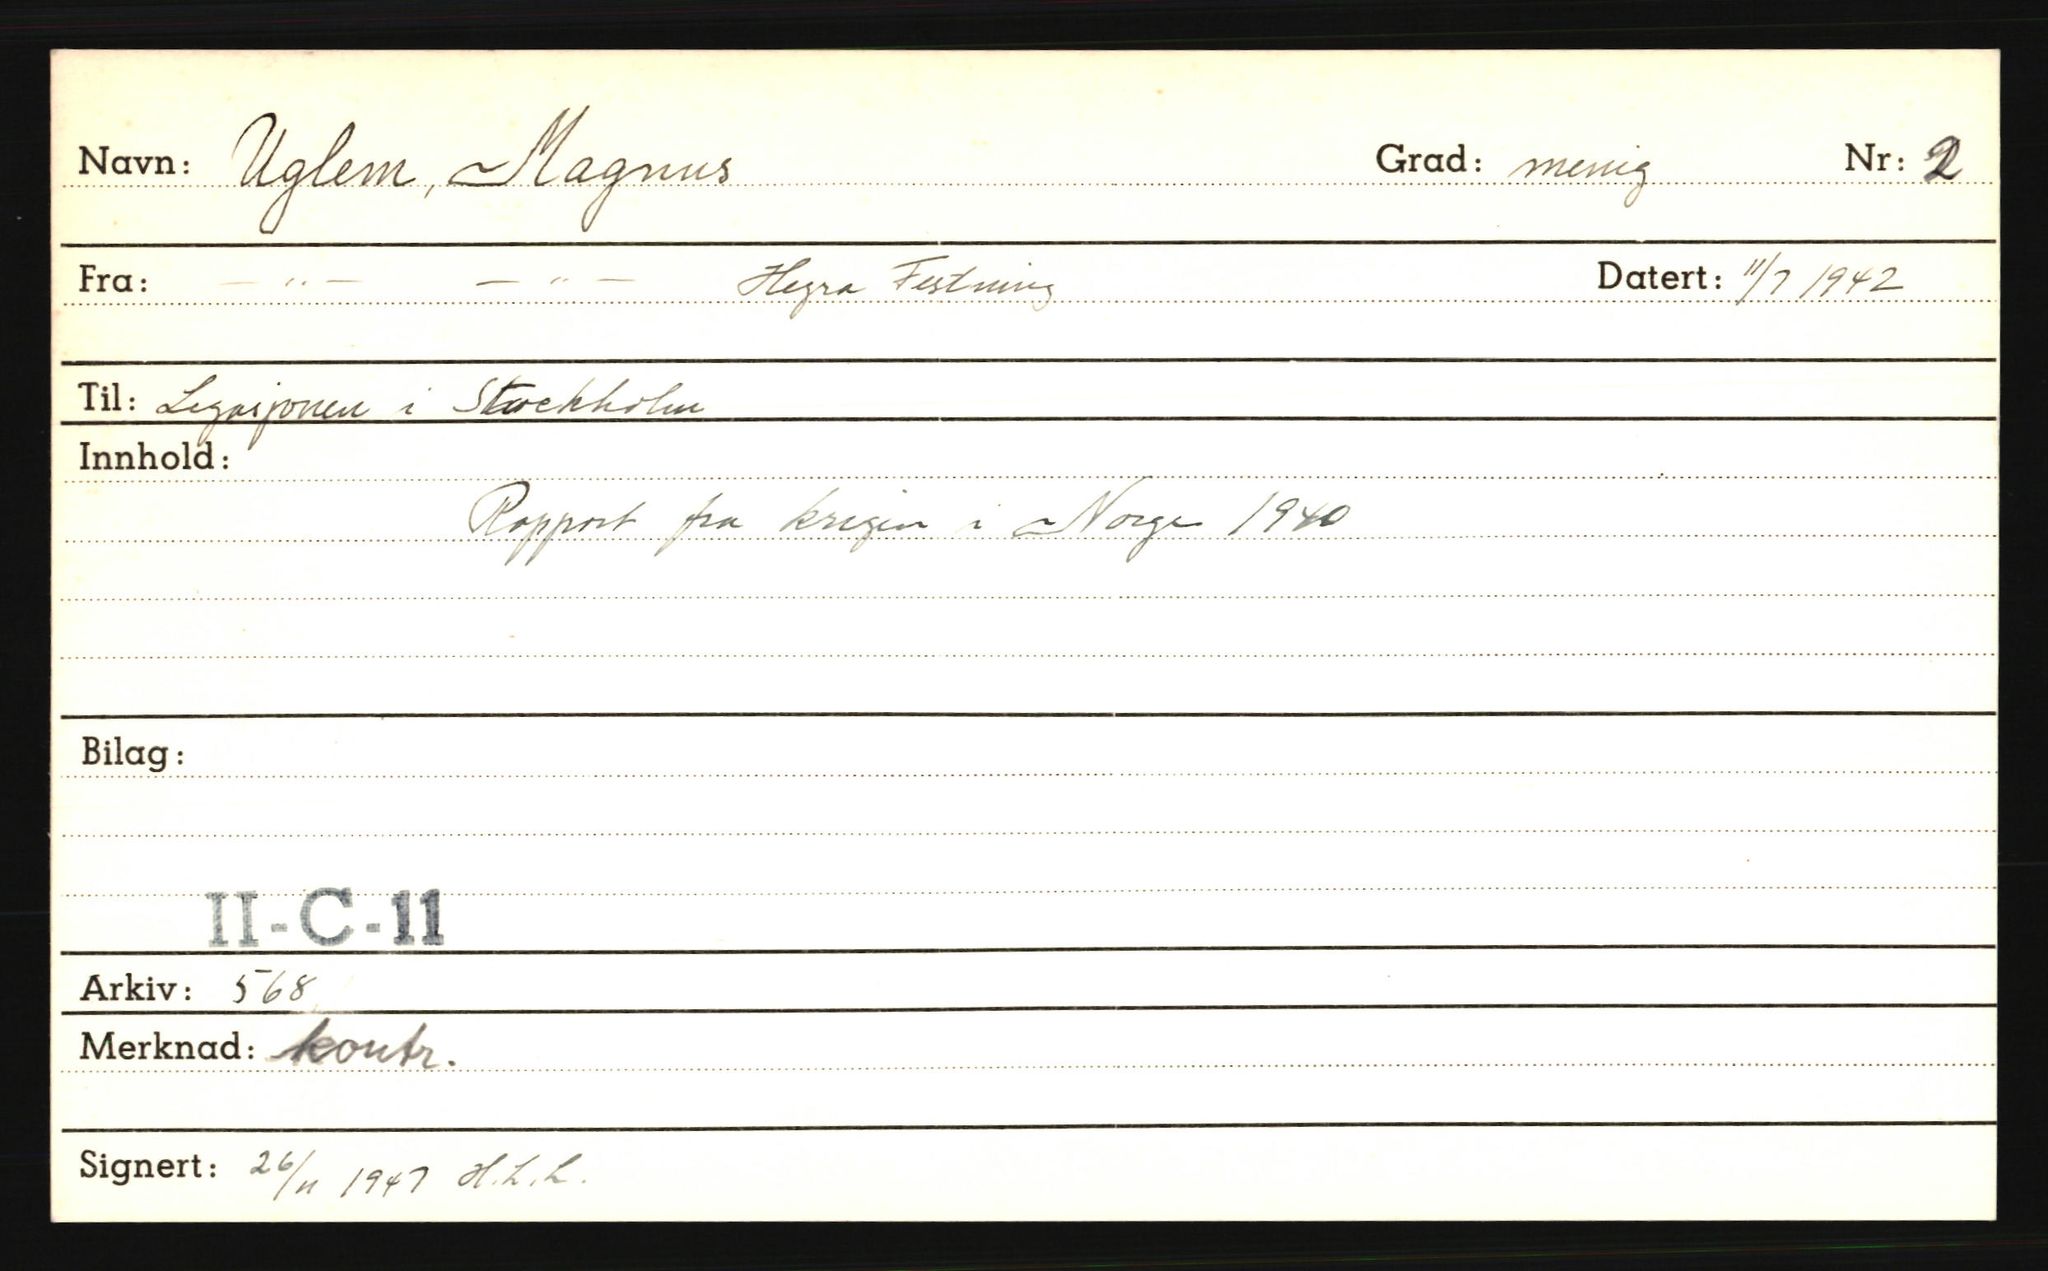 Navn: Uglem, Magnus Grad: menig Nr: 2
Fra: — " — — " — Hegra Festning Datert: 11/7 1942
Til: Legasjonen i Stockholm
Innhold:
Rapport fra krigen i Norge 1940
Bilag:
II-C-11
Arkiv: 568
Merknad: kontr.
Signert: 26/11 1947 H.L.L.